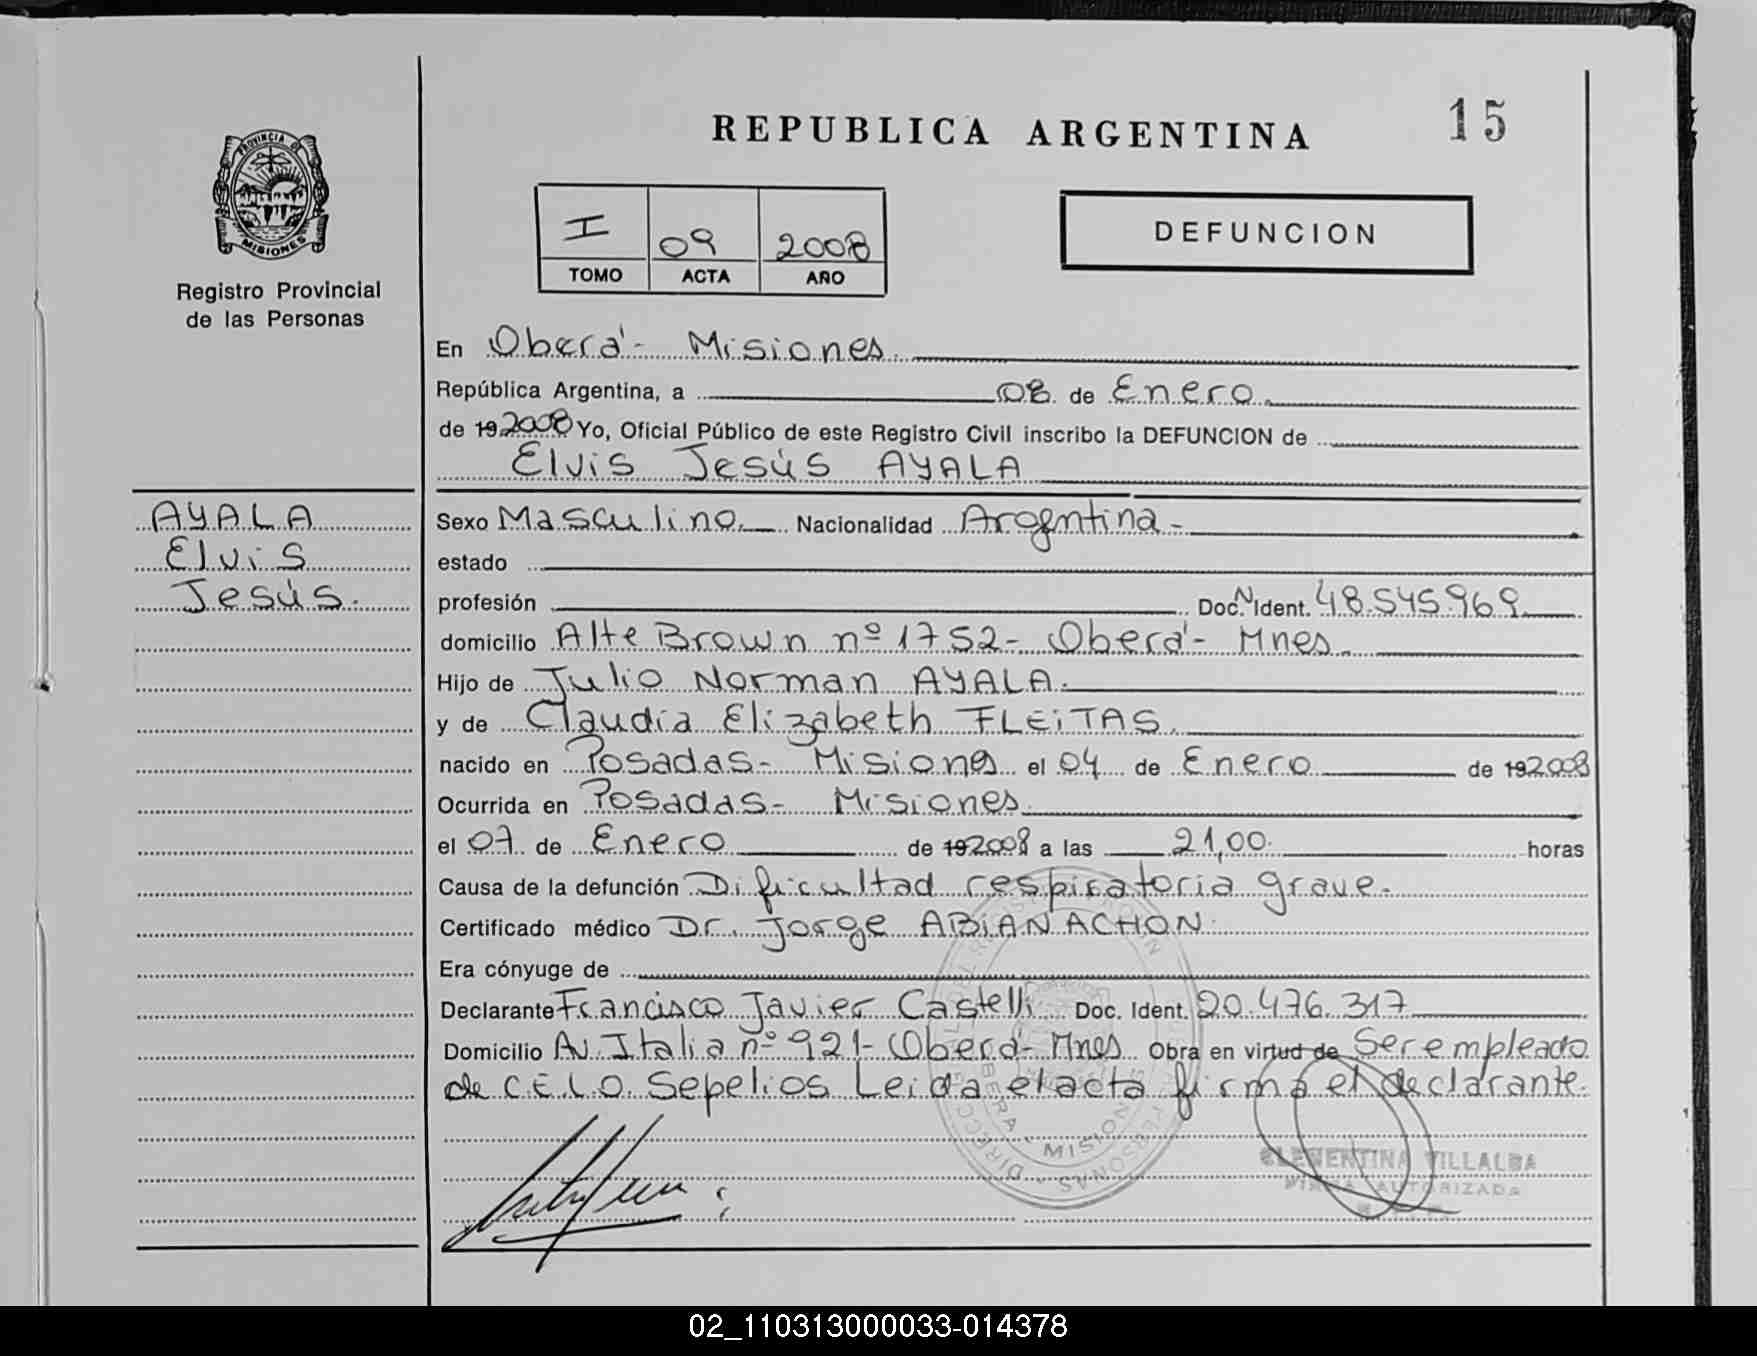 REPUBLICA ARGENTINA
15
PROVINCIA DE
MISIONES
Registro Provincial
de las Personas
I 09 2008
TOMO ACTA AÑO
DEFUNCION
En Oberá - Misiones.
República Argentina, a 08 de Enero
de 192008 Yo, Oficial Público de este Registro Civil inscribo la DEFUNCION de
Elvis Jesús AYALA
AYALA
Elvis
Jesús.
Sexo Masculino. Nacionalidad Argentina -
estado
profesión Doc. N Ident. 48.545.969
domicilio Alte Brown nº 1752 - Oberá - Mnes.
Hijo de Julio Norman AYALA.
y de Claudia Elizabeth FLEITAS.
nacido en Posadas - Misiones el 04 de Enero de 192008
Ocurrida en Posadas - Misiones.
el 07 de Enero de 192008 a las 21,00 horas
Causa de la defunción Dificultad respiratoria grave.
Certificado médico Dr. Jorge ABIANACHON
Era cónyuge de
Declarante Francisco Javier Castelli Doc. Ident. 20.476.317
Domicilio Av. Italia nº 921 - Oberá - Mnes Obra en virtud de Ser empleado
de C.E.L.O. Sepelios Leida el acta firma el declarante.
MISIONES
CLEMENTINA VILLALBA
FIRMA AUTORIZADA
02_110313000033-014378